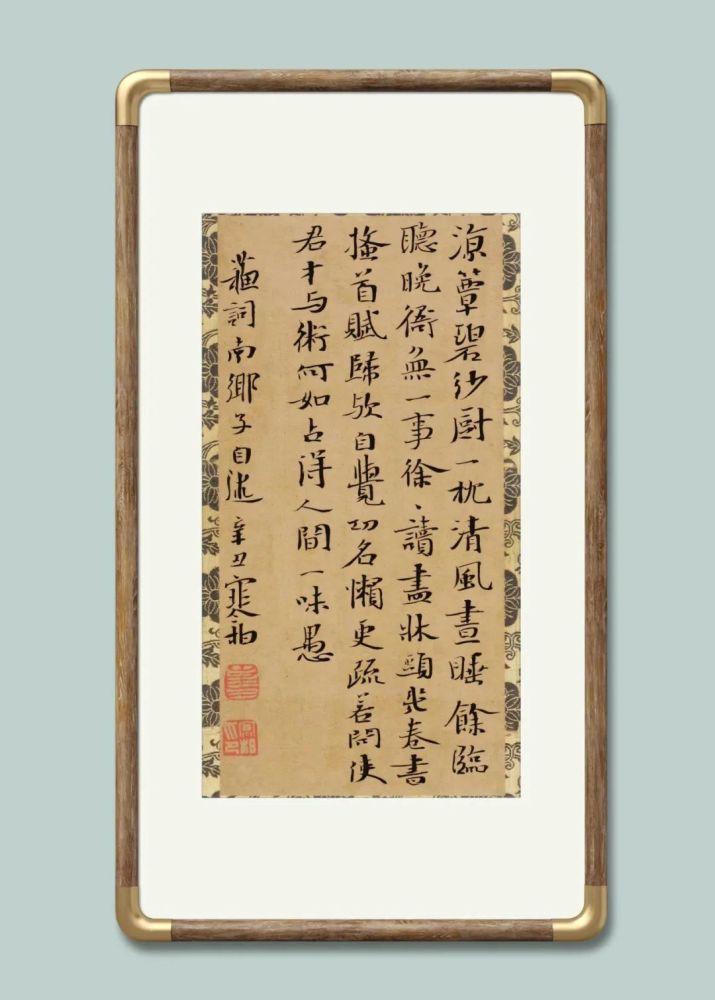 涼簟碧紗厨一枕清風晝睡餘臨
聽晚衙無一事徐、讀盡牀頭幾卷書
搔首賦歸欤自覺功名懶更疏若問使
君才与術何如占得人間一味愚
蘇詞南鄉子自述 辛丑